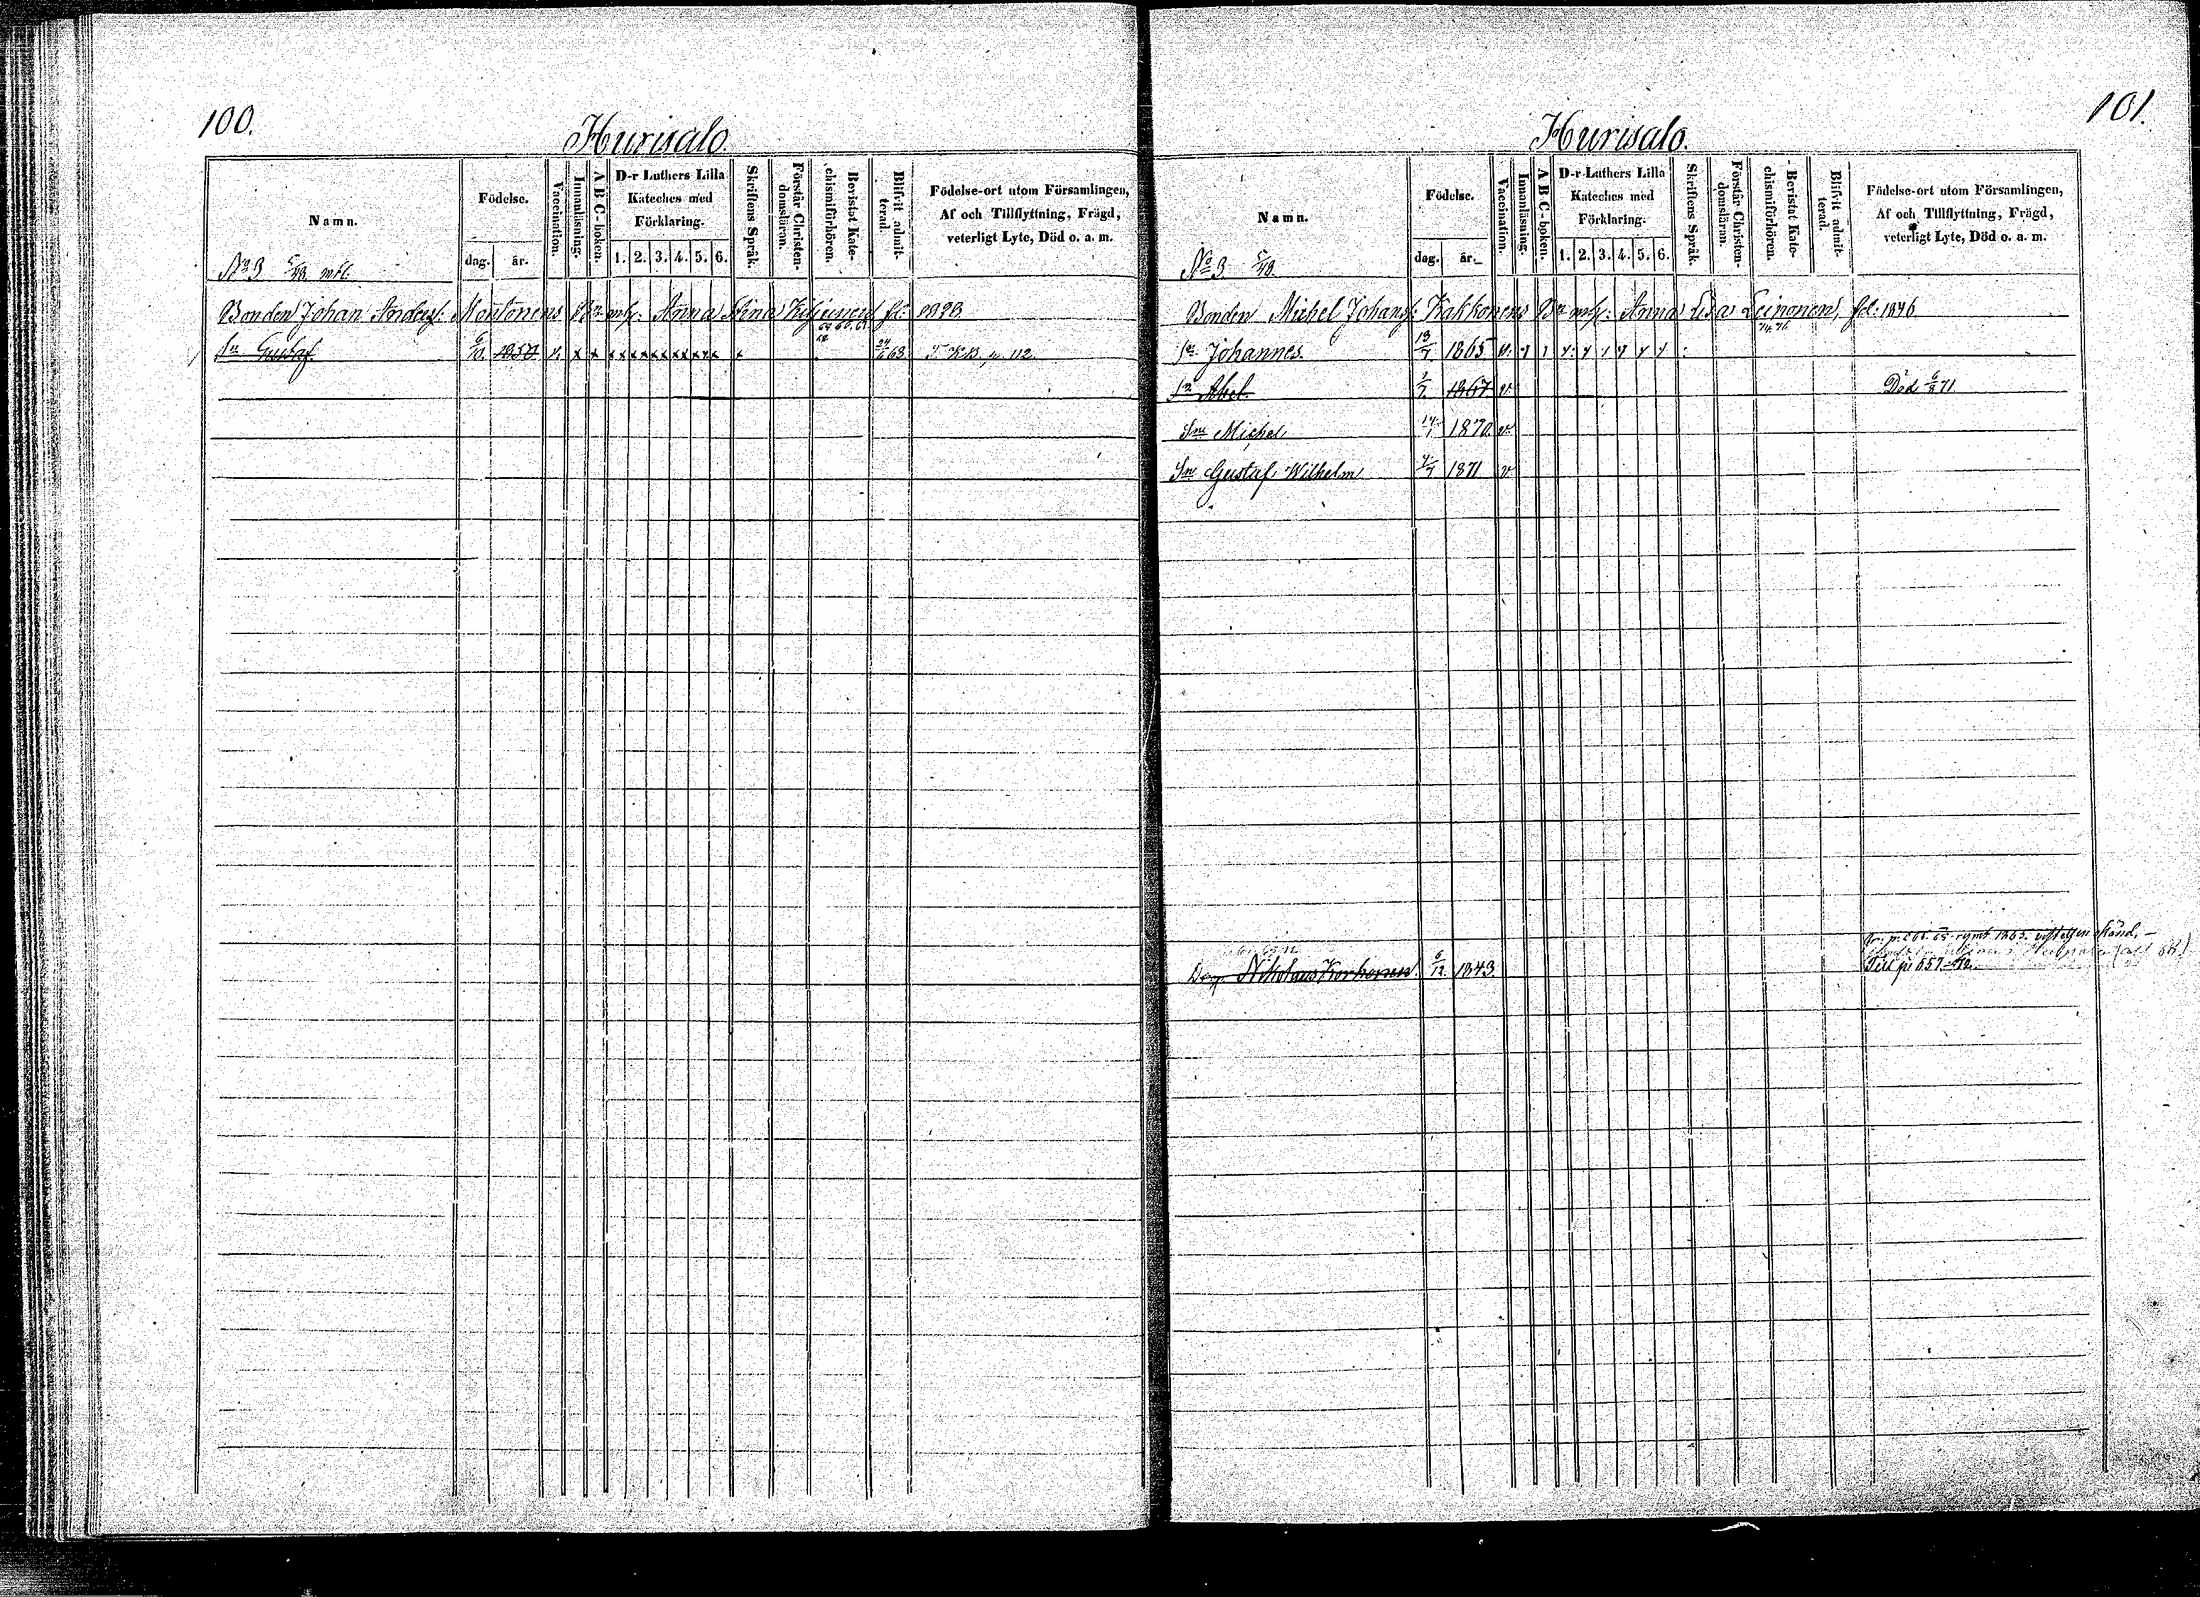 100.
Hurisalo
Namn.
Födelse.
dag. år.
Vaccination.
Innanläsning.
A B C-boken.
D-r Luthers Lilla
Kateches med
Förklaring.
1. 2. 3. 4. 5. 6.
Skriftens Språk.
Förstår Christen-
domsläran.
Bevistat Kate-
chismiförhören.
Blifvit admit-
terad.
Födelse-ort utom Församlingen,
Af och Tillflyttning, Frägd,
veterligt Lyte, Död o. a. m.
No 3 5/48 mtl.
Bonden Johan Andersf: Montonens Bn m/h: Anna Stina
Sn Gustaf 6/10 1850 v. x x x x x x x x x 24/6 68
101.
Hurisalo.
Namn.
Födelse.
dag. år.
Vaccination.
Innanläsning.
A B C-boken.
D-r Luthers Lilla
Kateches med
Förklaring.
1. 2. 3. 4. 5. 6.
Skriftens Språk.
Förstår Christen-
domsläran.
Bevistat Kate-
chismiförhören.
Blifvit admit-
terad.
Födelse-ort utom Församlingen,
Af och Tillflyttning, Frägd,
veterligt Lyte, Död o. a. m.
No 3 5/48.
Bonden Michel Johansf: Kakkonens Bn m/h: Anna Lisa Leinonen, fd: 1846
Sn Johannes 13/7 1865 v.
Sn Abel 1867 v Död 6/8 71
Sn Michel 14/1 1870. v.
Sn Gustaf Wilhelm 1871 v
Nikolaus Korhonen. 6/12 1843